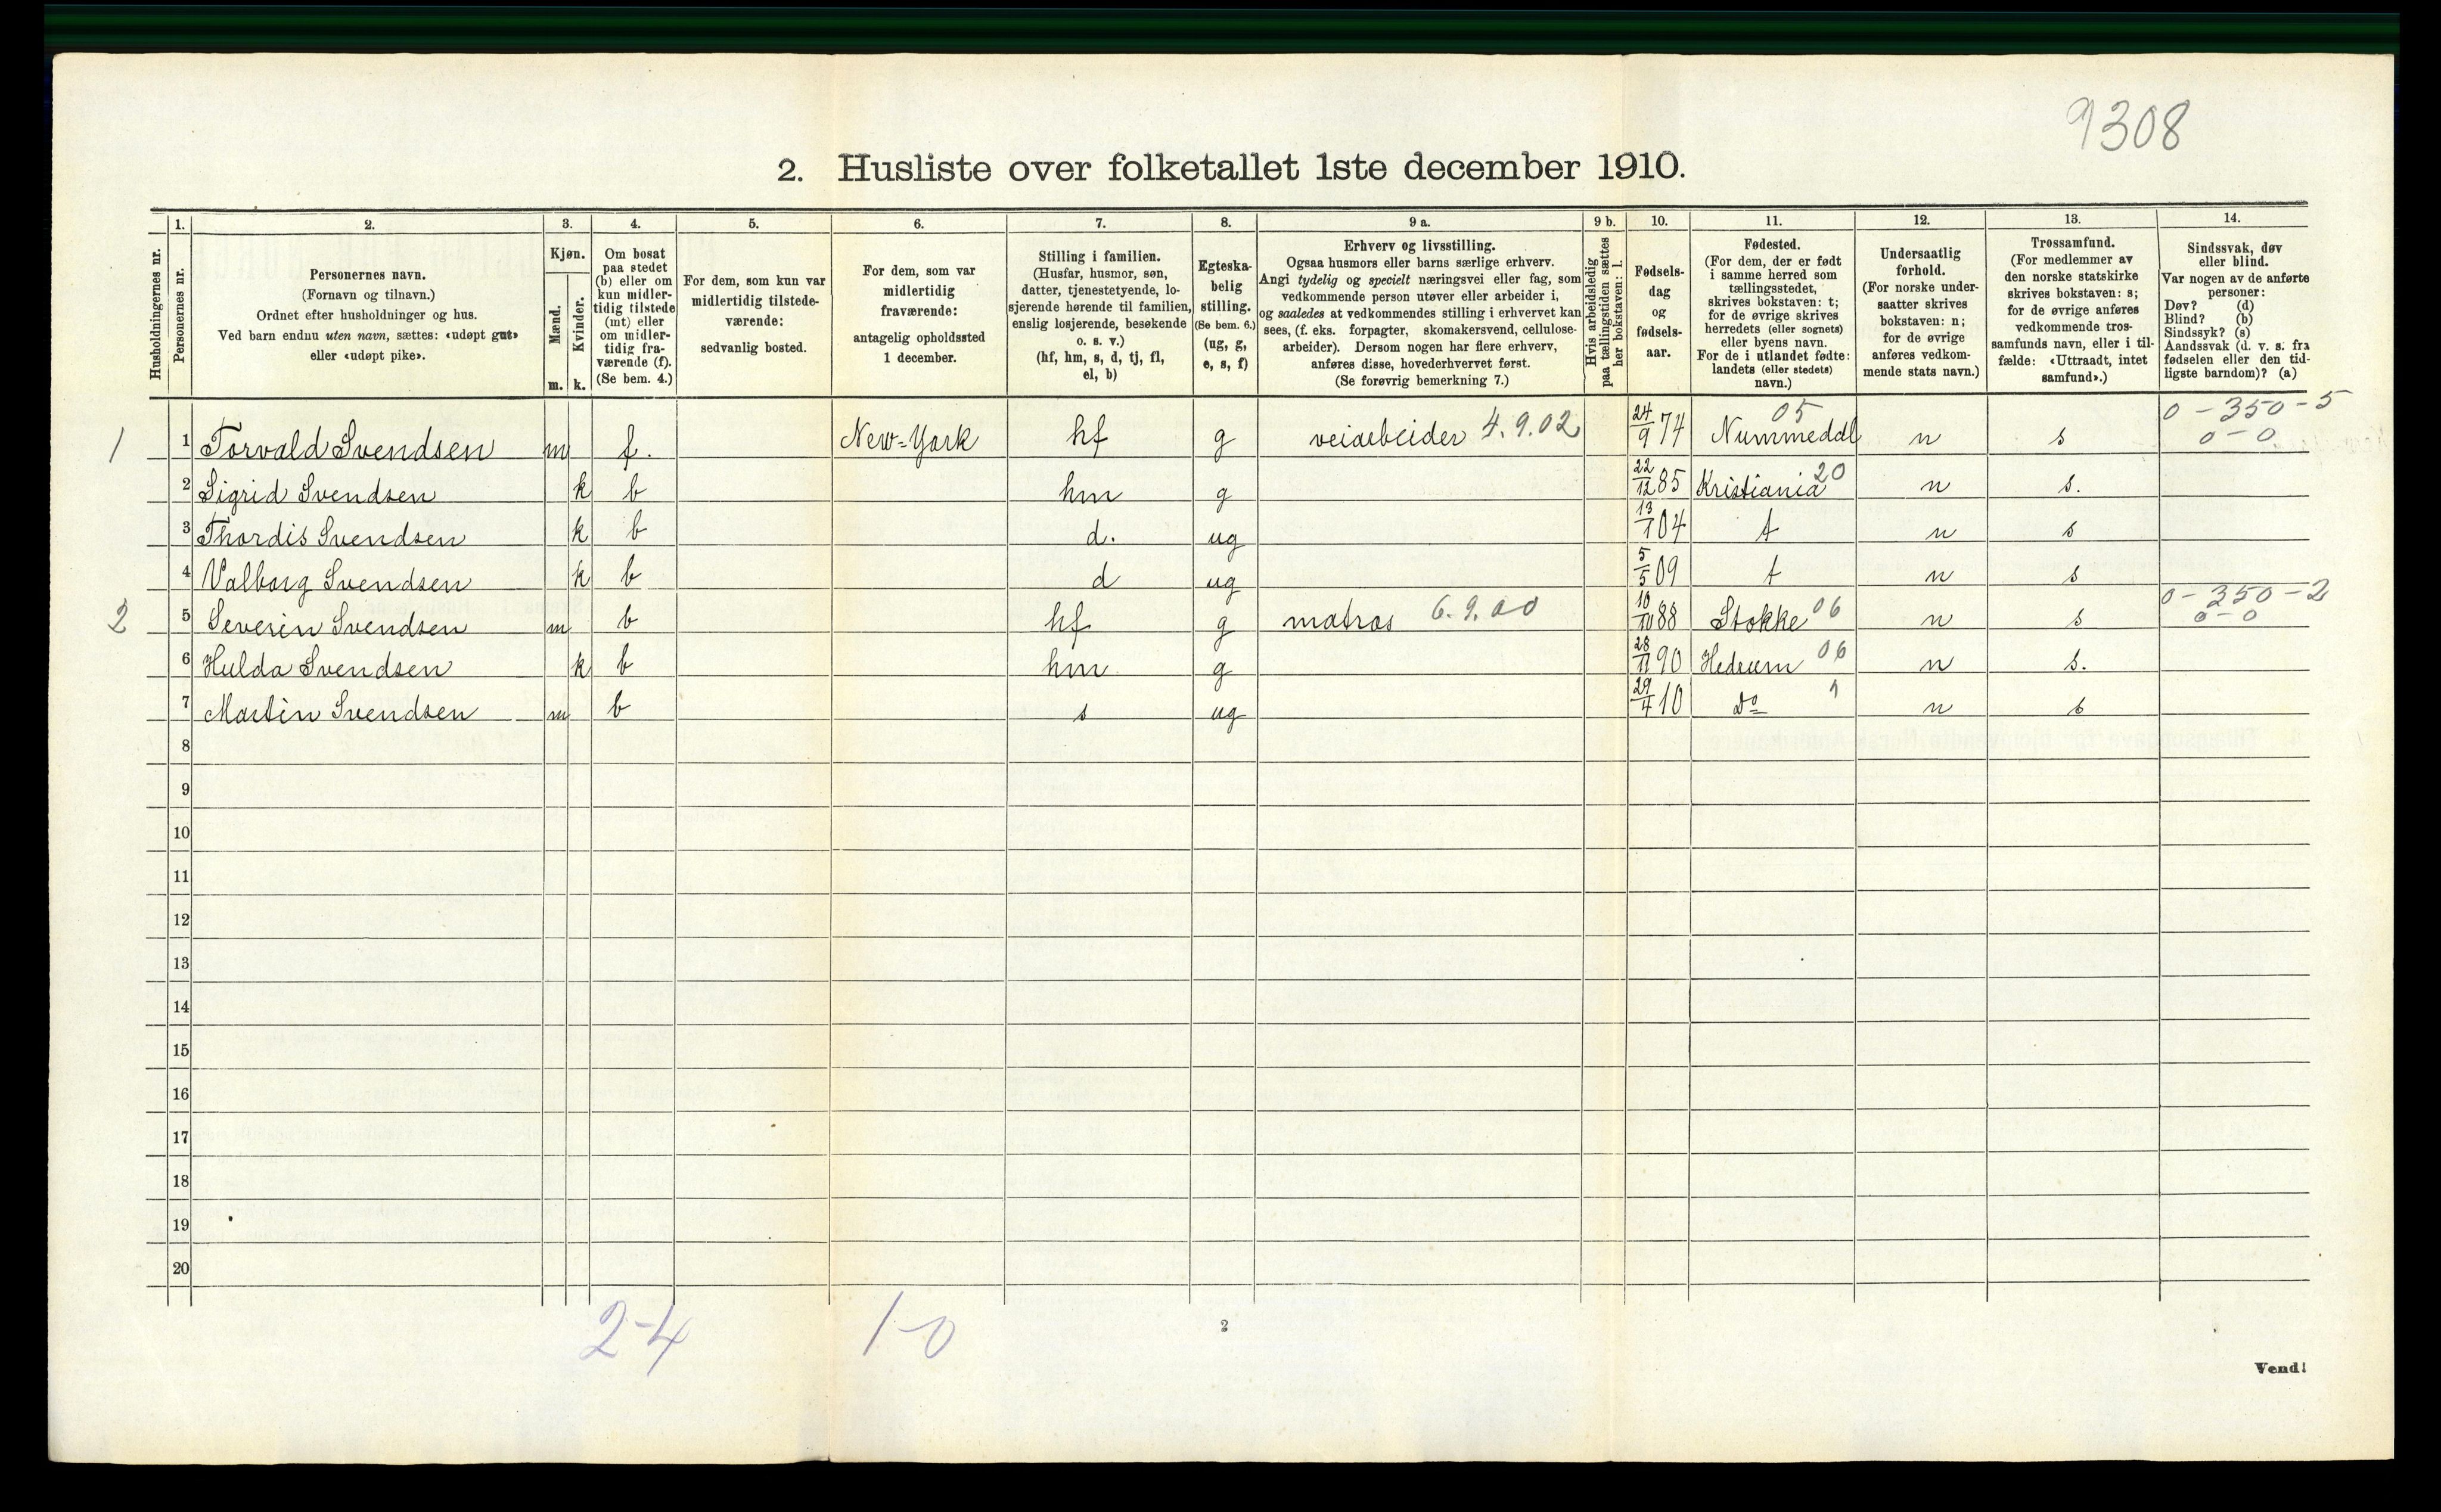 9308
2. Husliste over folketallet 1ste december 1910.
Husholdningernes nr.
1.
Personernes nr.
2.
Personernes navn.
(Fornavn og tilnavn.)
Ordnet efter husholdninger og hus.
Ved barn endnu uten navn, sættes: «udøpt gut»
eller «udøpt pike».
3.
Kjøn.
Mænd.
Kvinder.
m. k.
4.
Om bosat
paa stedet
(b) eller om
kun midler-
tidig tilstede
(mt) eller
om midler-
tidig fra-
værende (f).
(Se bem. 4.)
5.
For dem, som kun var
midlertidig tilstede-
værende:
sedvanlig bosted.
6.
For dem, som var
midlertidig
fraværende:
antagelig opholdssted
1 december.
7.
Stilling i familien.
(Husfar, husmor, søn,
datter, tjenestetyende, lo-
sjerende hørende til familien,
enslig losjerende, besøkende
o. s. v.)
(hf, hm, s, d, tj, fl,
el, b)
8.
Egteska-
belig
stilling.
(Se bem. 6.)
(ug, g,
e, s, f)
9 a.
Erhverv og livsstilling.
Ogsaa husmors eller barns særlige erhverv.
Angi tydelig og specielt næringsvei eller fag, som
vedkommende person utøver eller arbeider i,
og saaledes at vedkommendes stilling i erhvervet kan
sees, (f. eks. forpagter, skomakersvend, cellulose-
arbeider). Dersom nogen har flere erhverv,
anføres disse, hovederhvervet først.
(Se forøvrig bemerkning 7.)
9 b.
Hvis arbeidsledig
paa tællingstiden sættes
her bokstaven: l.
10.
Fødsels-
dag
og
fødsels-
aar.
11.
Fødested.
(For dem, der er født
i samme herred som
tællingsstedet,
skrives bokstaven: t;
for de øvrige skrives
herredets (eller sognets)
eller byens navn.
For de i utlandet fødte:
landets (eller stedets)
navn.)
12.
Undersaatlig
forhold.
(For norske under-
saatter skrives
bokstaven: n;
for de øvrige
anføres vedkom-
mende stats navn.)
13.
Trossamfund.
(For medlemmer av
den norske statskirke
skrives bokstaven: s;
for de øvrige anføres
vedkommende tros-
samfunds navn, eller i til-
fælde: «Uttraadt, intet
samfund».)
14.
Sindssvak, døv
eller blind.
Var nogen av de anførte
personer:
Døv? (d)
Blind? (b)
Sindssyk? (s)
Aandssvak (d. v. s. fra
fødselen eller den tid-
ligste barndom)? (a)
1 1 Torvald Svendsen m f. New-York hf g veiarbeider 4.9.02 24/9 74 Nummedal 05 n s 0-350-5 0-0
2 Sigrid Svendsen k b hm g 22/12 85 Kristiania 20 n s.
3 Thordis Svendsen k b d. ug 13/1 04 t n s
4 Valborg Svendsen k b d ug 5/5 09 t n s
2 5 Severin Svendsen m b hf g matros 6.9.00 10/10 88 Stokke 06 n s 0-350-2 0-0
6 Hulda Svendsen k b hm g 28/11 90 Hedrum 06 n s.
7 Martin Svendsen m b s ug 29/4 10 Do n s
8
9
10
11
12
13
14
15
16
17
18
19
20
2-4 1-0
2
Vend!